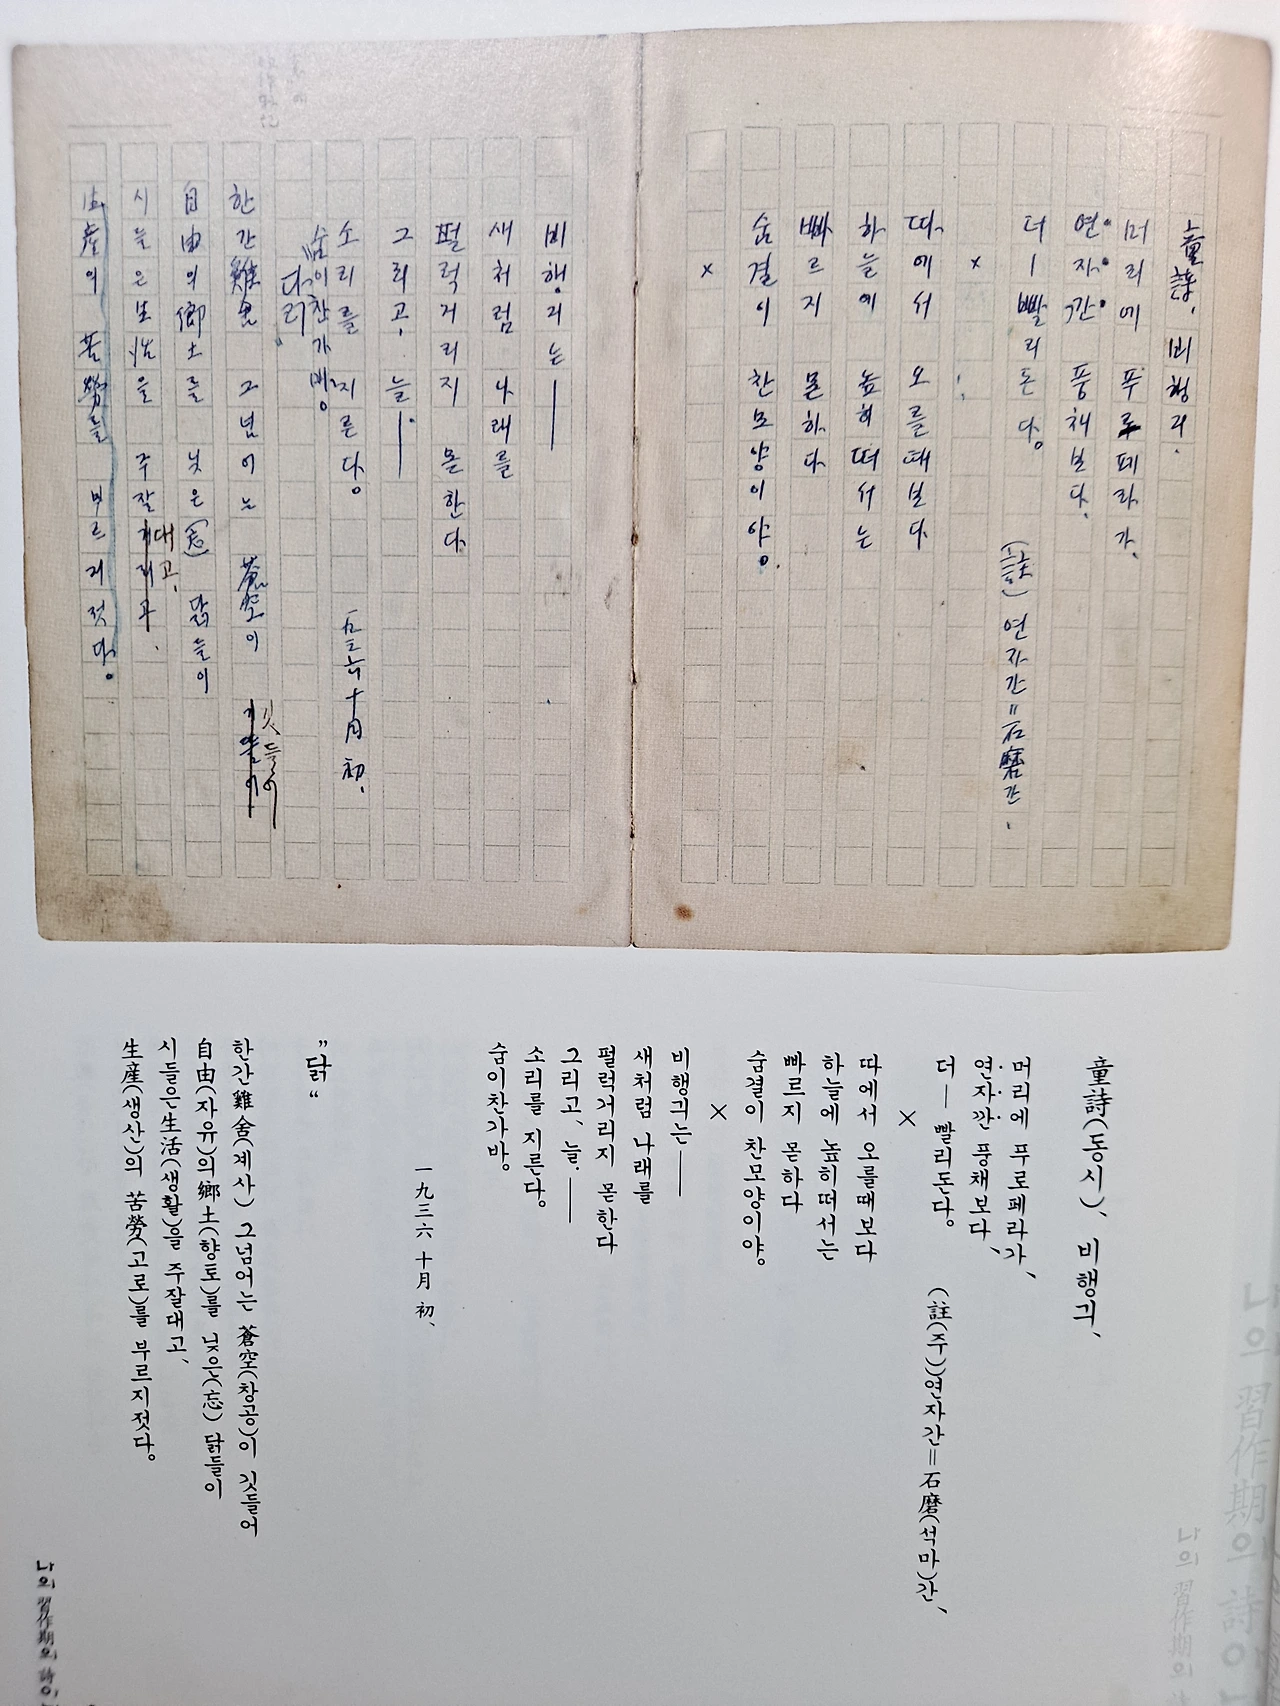 童詩、비행긔、
머리에 푸로페라가、
연자깐 풍채보다、
더ㅣ빨리돈다。
(註)연자간=石磨간、
×
따에서 오를때보다
하늘에 높히떠서는
빠르지 몯하다
숨결이 찬모양이야。
×
비행기는──
새처럼 나래를
펄럭거리지 몯한다
그리고、늘──
소리를 지른다。
숨이찬가바。
一九三六 十月 初、
„닭“
한간鷄舍 그넘어는 蒼空이 깃들어
自由의鄕土를 닞은(忘) 닭들이
시들은生活을 주잘대고、
生產의 苦勞를 부르지젓다。
童詩(동시)、비행긔、
머리에 푸로페라가、
연자깐 풍채보다、
더─ 빨리돈다。
(註(주))연자간=石磨(석마)간、
×
따에서 오를때보다
하늘에 높히떠서는
빠르지 몯하다
숨결이 찬모양이야。
×
비행긔는──
새처럼 나래를
펄럭거리지 몯한다
그리고、늘.──
소리를 지른다。
숨이찬가바。
一九三六 十月 初、
„닭“
한간雞舍(계사) 그넘어는 蒼空(창공)이 깃들어
自由(자유)의鄕土(향토)를 닞은(忘) 닭들이
시들은生活(생활)을 주잘대고、
生産(생산)의 苦勞(고로)를 부르지젓다。
나의 習作期의 詩아